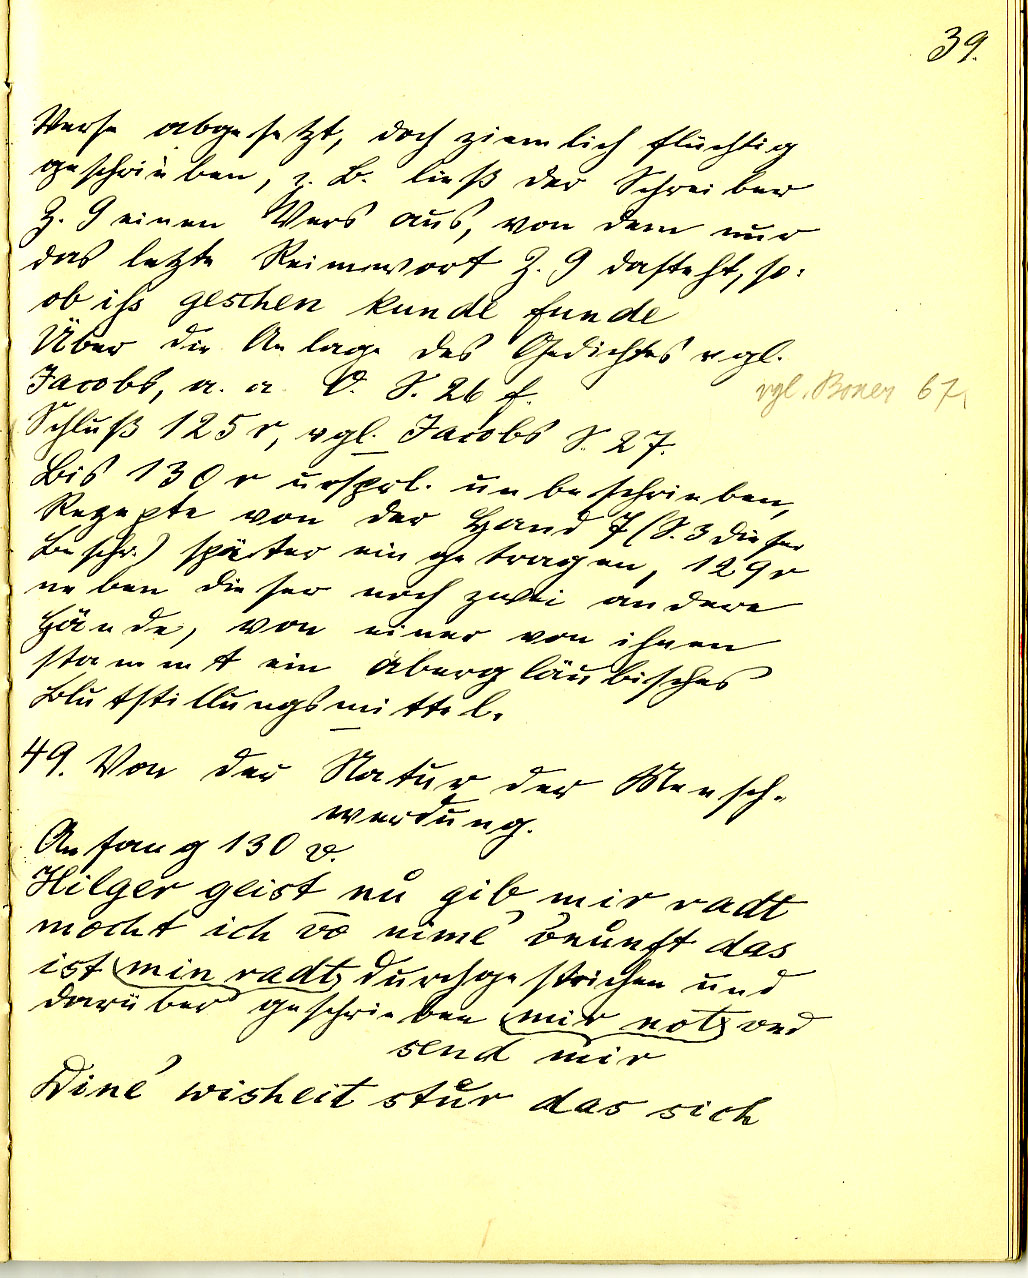 39.
Verse abgesetzt, doch ziemlich flüchtig
geschrieben, z. B. ließ der Schreiber
Z. 9 einen Vers aus, von dem nur
das letzte Reimwort Z. 9 dasteht, so:
ob iss geschen kunde funde
Über die Anlage des Gedichtes vgl.
Jacobs, a. a. O. S. 26 f.
vgl. Boner 67,
Schluß 125 r, vgl. Jacobs S. 27.
Bis 130 r ursprl. unbeschrieben,
Rezepte von der Hand 7 (S. 3 dieser
Beschr.) später eingetragen, 129 r
neben dieser noch zwei andere
Hände, von einer von ihnen
stammt ein abergläubisches
Blutstillungsmittel.
49. Von der Natur der Mensch-
werdung.
Anfang 130 v.
Hilger geist nů gib mir radt
mocht ich vō nimē v̄nunft das
ist (min radt) durchgestrichen und
darüber geschrieben (mir not) vnd
send mir
Dinē wisheit stůr das sich